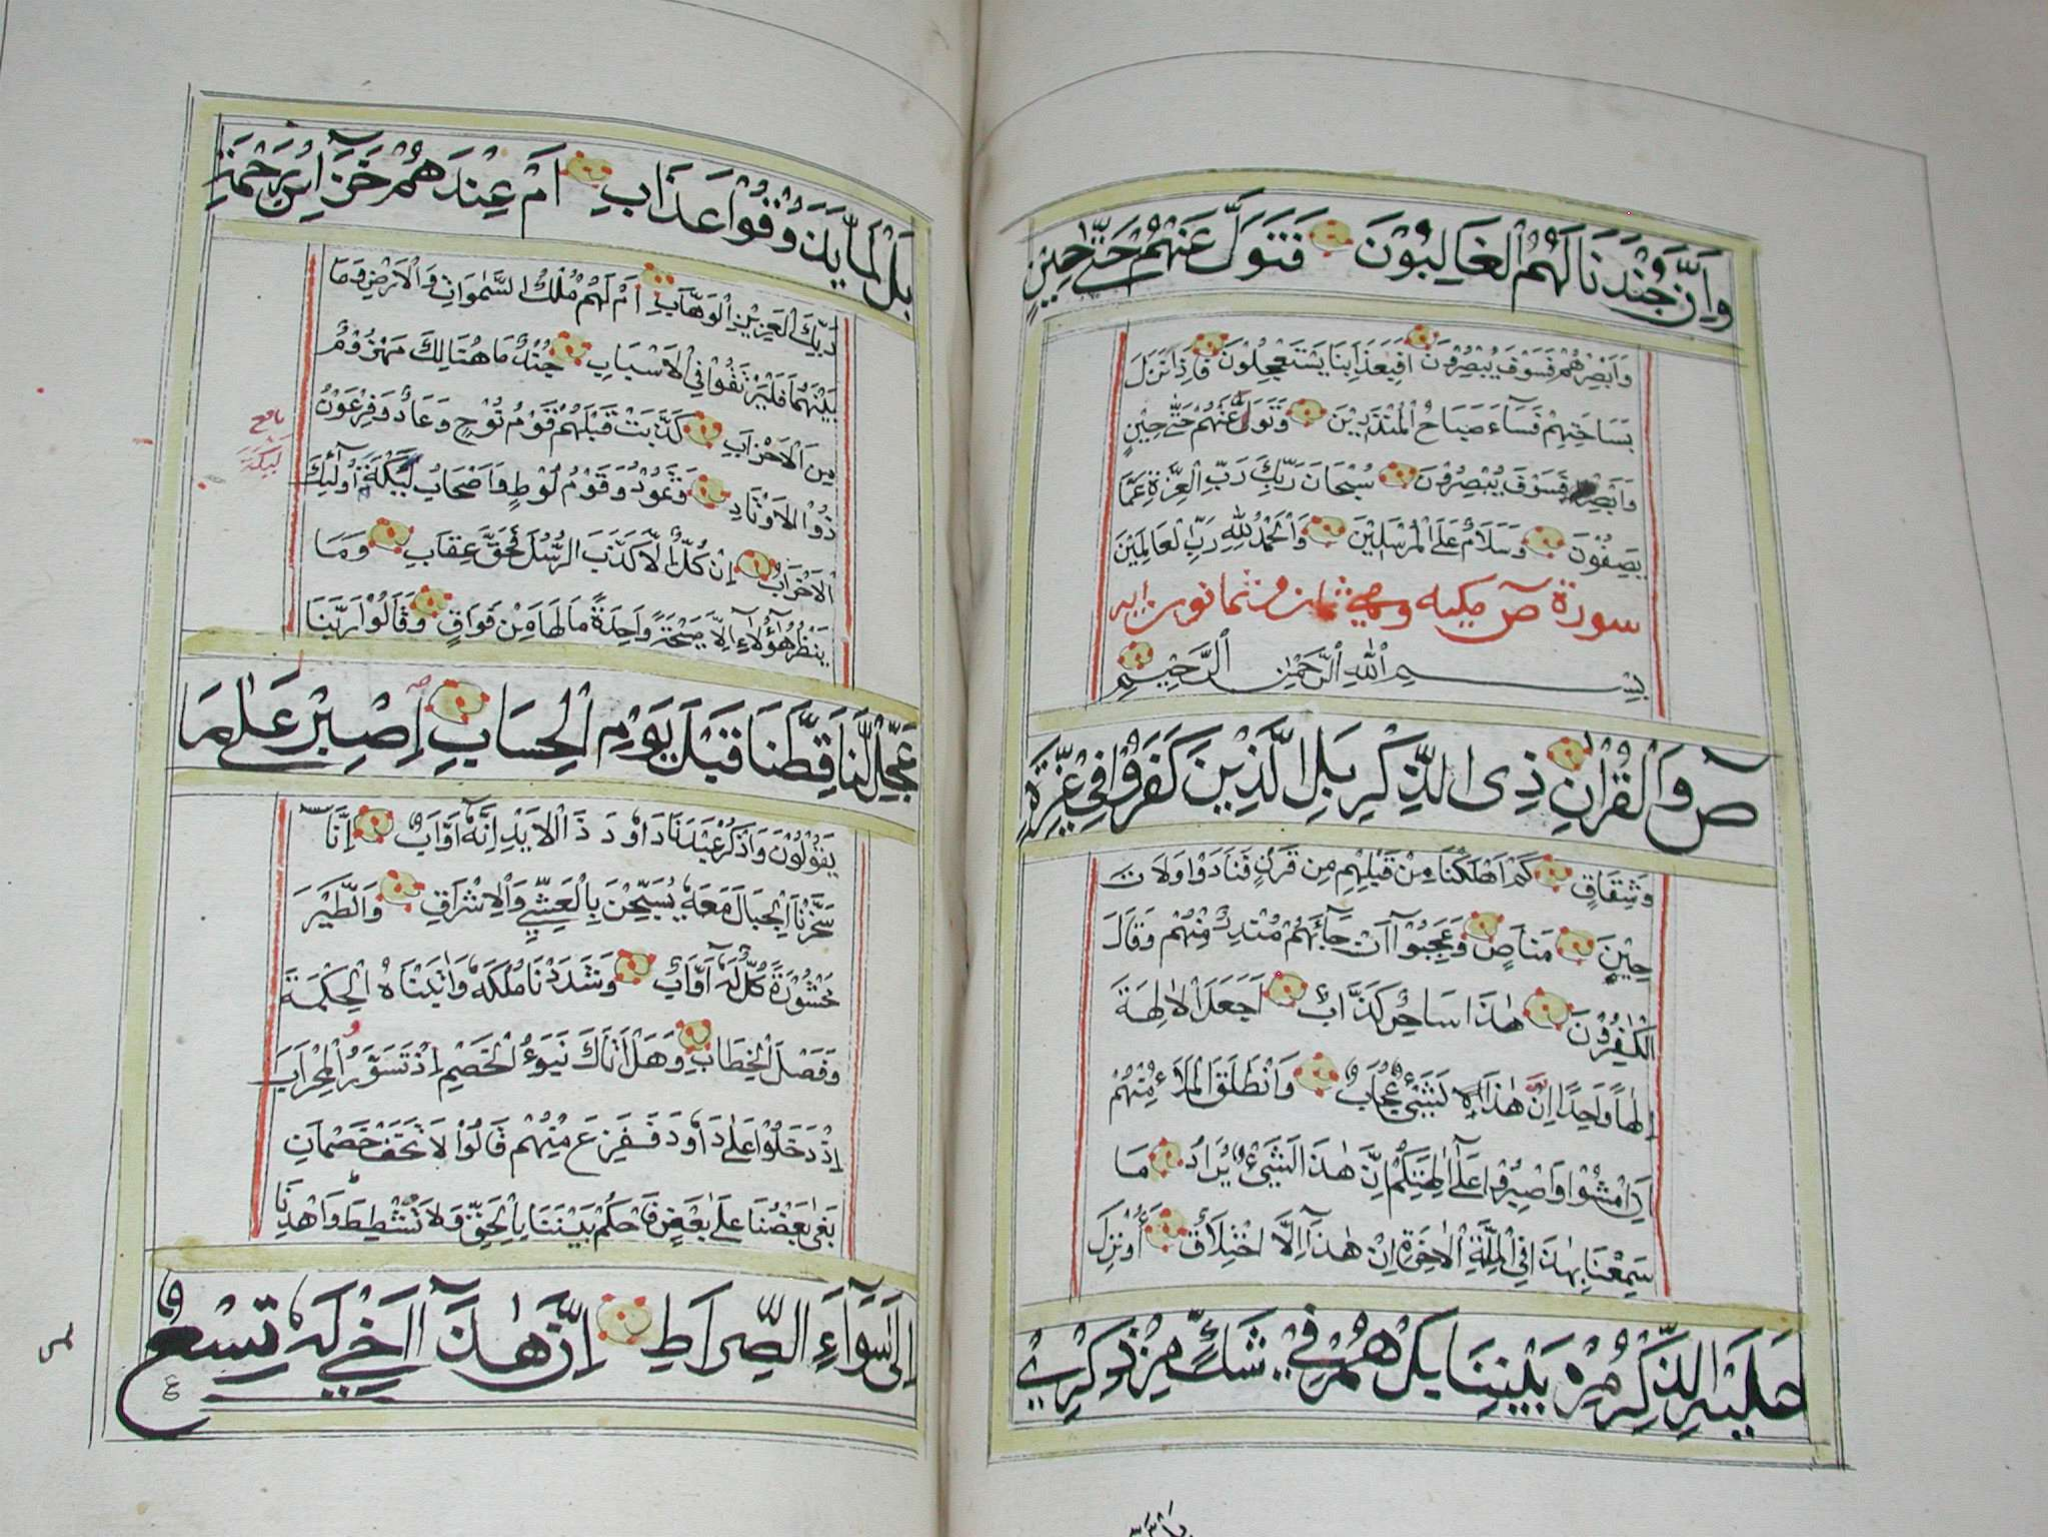 وَاِنَّ جُنْدَنَا لَهُمُ الْغَالِبُوْنَ فَتَوَلَّ عَنْهُمْ حَتّٰى حِيْنٍ
وَاَبْصِرْهُمْ فَسَوْفَ يُبْصِرُوْنَ اَفَبِعَذَابِنَا يَسْتَعْجِلُوْنَ فَاِذَا نَزَلَ
بِسَاحَتِهِمْ فَسَآءَ صَبَاحُ الْمُنْذَرِيْنَ وَتَوَلَّ عَنْهُمْ حَتّٰى حِيْنٍ
وَاَبْصِرْ فَسَوْفَ يُبْصِرُوْنَ سُبْحَانَ رَبِّكَ رَبِّ الْعِزَّةِ عَمَّا
يَصِفُوْنَ وَسَلَامٌ عَلَى الْمُرْسَلِيْنَ وَالْحَمْدُ لِلّٰهِ رَبِّ الْعَالَمِيْنَ
سورة صٓ مكيه وهي ثمان وثمانون ايه
بِسْمِ اللّٰهِ الرَّحْمٰنِ الرَّحِيْمِ
صٓ وَالْقُرْاٰنِ ذِى الذِّكْرِ بَلِ الَّذِيْنَ كَفَرُوْا فِيْ عِزَّةٍ
وَشِقَاقٍ كَمْ اَهْلَكْنَا مِنْ قَبْلِهِمْ مِنْ قَرْنٍ فَنَادَوْا وَلَاتَ
حِيْنَ مَنَاصٍ وَعَجِبُوْآ اَنْ جَآءَهُمْ مُنْذِرٌ مِنْهُمْ وَقَالَ
الْكٰفِرُوْنَ هٰذَا سَاحِرٌ كَذَّابٌ اَجَعَلَ الْاٰلِهَةَ
اِلٰهًا وَاحِدًا اِنَّ هٰذَا لَشَيْءٌ عُجَابٌ وَانْطَلَقَ الْمَلَاُ مِنْهُمْ
اَنِ امْشُوْا وَاصْبِرُوْا عَلٰٓى اٰلِهَتِكُمْ اِنَّ هٰذَا لَشَيْءٌ يُرَادُ مَا
سَمِعْنَا بِهٰذَا فِي الْمِلَّةِ الْاٰخِرَةِ اِنْ هٰذَآ اِلَّا اخْتِلَاقٌ ءَاُنْزِلَ
عَلَيْهِ الذِّكْرُ مِنْ بَيْنِنَا بَلْ هُمْ فِيْ شَكٍّ مِنْ ذِكْرِيْ
بَلْ لَمَّا يَذُوْقُوْا عَذَابِ اَمْ عِنْدَهُمْ خَزَآئِنُ رَحْمَةِ
رَبِّكَ الْعَزِيْزِ الْوَهَّابِ اَمْ لَهُمْ مُلْكُ السَّمٰوَاتِ وَالْاَرْضِ وَمَا
بَيْنَهُمَا فَلْيَرْتَقُوْا فِي الْاَسْبَابِ جُنْدٌ مَا هُنَالِكَ مَهْزُوْمٌ
مِنَ الْاَحْزَابِ كَذَّبَتْ قَبْلَهُمْ قَوْمُ نُوْحٍ وَعَادٌ وَفِرْعَوْنُ
ذُوْ الْاَوْتَادِ وَثَمُوْدُ وَقَوْمُ لُوْطٍ وَاَصْحَابُ لْئَيْكَةِ اُولٰٓئِكَ
الْاَحْزَابُ اِنْ كُلٌّ اِلَّا كَذَّبَ الرُّسُلَ فَحَقَّ عِقَابِ وَمَا
يَنْظُرُ هٰٓؤُلَآءِ اِلَّا صَيْحَةً وَاحِدَةً مَا لَهَا مِنْ فَوَاقٍ وَقَالُوْا رَبَّنَا
عَجِّلْ لَنَا قِطَّنَا قَبْلَ يَوْمِ الْحِسَابِ اِصْبِرْ عَلٰى مَا
يَقُوْلُوْنَ وَاذْكُرْ عَبْدَنَا دَاوٗدَ ذَا الْاَيْدِ اِنَّهٗٓ اَوَّابٌ اِنَّا
سَخَّرْنَا الْجِبَالَ مَعَهٗ يُسَبِّحْنَ بِالْعَشِيِّ وَالْاِشْرَاقِ وَالطَّيْرَ
مَحْشُوْرَةً كُلٌّ لَهٗٓ اَوَّابٌ وَشَدَدْنَا مُلْكَهٗ وَاٰتَيْنَاهُ الْحِكْمَةَ
وَفَصْلَ الْخِطَابِ وَهَلْ اَتٰكَ نَبَؤُ الْخَصْمِ اِذْ تَسَوَّرُ الْمِحْرَابَ
اِذْ دَخَلُوْا عَلٰى دَاوٗدَ فَفَزِعَ مِنْهُمْ قَالُوْا لَا تَخَفْ خَصْمَانِ
بَغٰى بَعْضُنَا عَلٰى بَعْضٍ فَاحْكُمْ بَيْنَنَا بِالْحَقِّ وَلَا تُشْطِطْ وَاهْدِنَا
اِلٰى سَوَآءِ الصِّرَاطِ اِنَّ هٰذَآ اَخِيْ لَهٗ تِسْعٌ